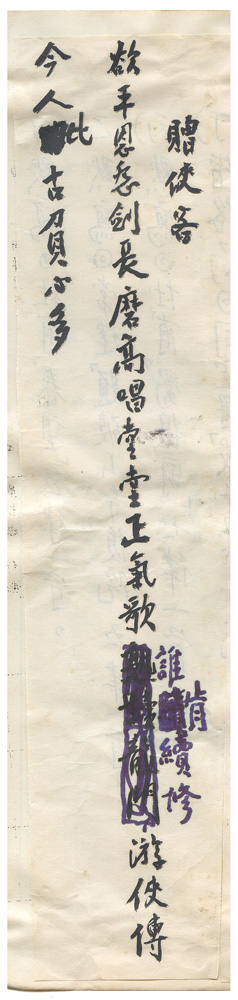 贈俠客
欲平恩怨劍長磨高唱堂堂正氣歌誰肯續修游俠傳
今人比古負心多